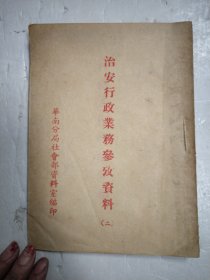 治安行政業務參攷資料(二)
華南分局社會部資料室編印